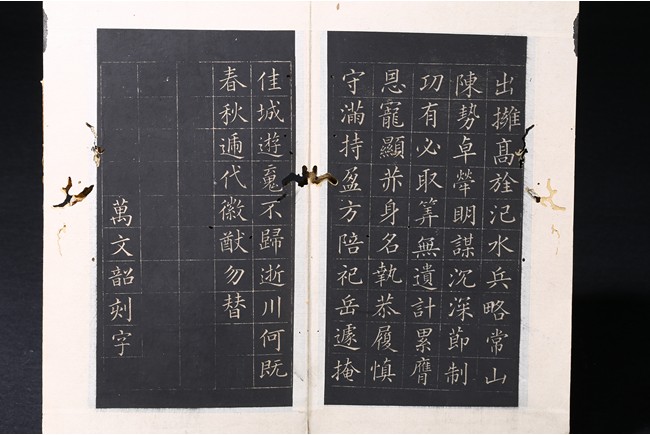 出擁高旌汜水兵略常山
陳勢卓犖明謀沉深節制
功有必取筭無遺計累膺
恩寵顯亦身名執恭履慎
守滿持盈方陪祀岳遽掩
佳城遊魂不歸逝川何既
春秋遞代徽猷勿替
萬文韶刻字